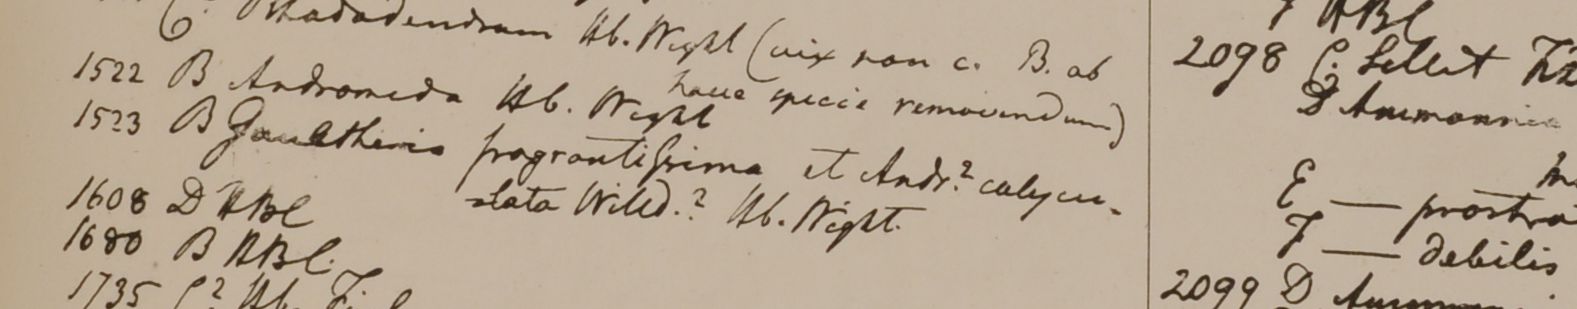 C. Rhadadendrum Hb. Wight (vix non c. B. ab
hacce specie removendum)
1522 B Andromeda Hb. Wight
1523 B Gaultheria fragrantissima et Andr.? calycu-
-lata Willd.? Hb. Wight.
1608 D HBC
1680 B HBC.
1735 C? Hb.
F HBC
2098 C.
D Ammannia
E — prostra
F — debilis
2099 D